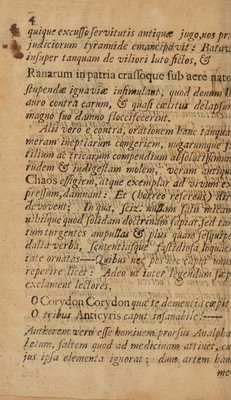 4
quique excusso servitutis antiquæ jugo, nos præ
judiciorum tyrannide emancipavit: Batavos
insuper tanquam de viliori luto fictos, &
Ranarum in patria crassoque sub aere nato
stupendæ ignaviæ insimulant, quod donum
auro contra carum, & quasi cælitus delapsum
magno suo damno floccifecerint.
Alii vero è contra, orationem hanc tanquam
meram ineptiarum congeriem, nugarumque
tilium ac tricarum compendium absolutissimum
rudem & indigestam molem, veram antiqui
Chaos effigiem, atque exemplar ad vivum ex-
pressam, damnant: Et (horreo referens) diris
devovent: In qua, scil: nullum salis micam
nihilque quod solidam doctrinam sapiat, sed tan
tum turgentes ampullas & plus quam sesquipe
dalia verba, sententiasque fastidiosa
rate ornatas——Quibus nec pes nec caput
reperire licet: Adeo ut inter legendum sæpe
exclament lectores,
O Corydon Corydon quæ te dementia cæpit
O tribus Anticyris caput insanabile!——
Authorem vero esse hominem prorsus Analpha
betum, saltem quod ad medicinam attinet, cu
jus ipsa elementa ignorat: dum artem han
me-